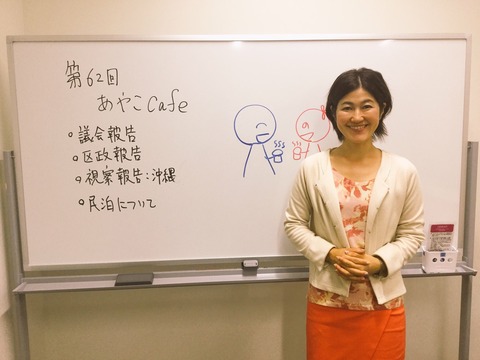 第62回
あやこCafe
○議会報告
○区政報告
○視察報告:沖縄
○民泊について